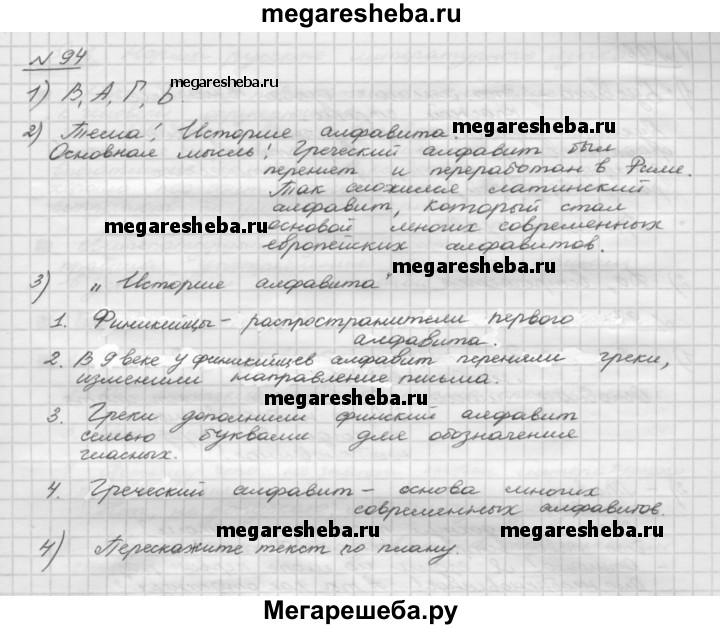 megaresheba.ru
N 94
1) В, А, Г, Б. megaresheba.ru
2) Тема: История алфавита. megaresheba.ru
Основная мысль: Греческий алфавит был
перенят и переработан в Риме.
Так сложился латинский
алфавит, который стал
megaresheba.ru основой многих современных
европейских алфавитов.
3) "История алфавита" megaresheba.ru
1. Финикийцы - распространители первого
алфавита.
2. В 9 веке у финикийцев алфавит переняли греки,
изменили направление письма.
megaresheba.ru
3. Греки дополнили финский алфавит
семью буквами для обозначения
гласных.
4. Греческий алфавит - основа многих
современных алфавитов.
megaresheba.ru megaresheba.ru
4) Перескажите текст по плану.
Мегарешеба.ру